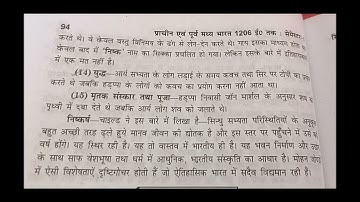 94
प्राचीन एवं पूर्व मध्य भारत 1206 ई० तक : सेमेस्टर
करते थे। वे केवल वस्तु विनिमय के ढंग से लेन-देन करते थे। गाय इसका माध्यम होता
केवल बाद में 'निष्क' नाम का सिक्का प्रचलित हो गया। लेकिन इसके बारे में इतिहासकारों
में एक मत नहीं है।
(14) युद्ध—आर्य सभ्यता के लोग लड़ाई के समय कवच तथा सिर पर टोपी का प्रयोग
करते थे जबकि हड़प्पा के लोगों को कवच का प्रयोग करना नहीं आता था।
(15) मृतक संस्कार तथा पूजा—हड़प्पा निवासी जॉन मार्शल के अनुसार शव को
पृथ्वी में दबा देते थे जबकि आर्य शव को जलाते थे।
निष्कर्ष—चाइल्ड ने इस बारे में लिखा है—सिन्धु सभ्यता परिस्थितियों के अनुकूल
बहुत अच्छी तरह ढले हुये मानव जीवन को द्योतक है और इस स्तर पर पहुँचने में उसे
वर्ष होंगे। यह स्थिर रही है। यह तो वास्तव में भारतीय ही है। यह भवन निर्माण और
के साथ साथ वेशभूषा तथा धर्म में आधुनिक, भारतीय संस्कृति का आधार है। मोहन जोदड़ो
में ऐसी विशेषताएँ दृष्टिगोचर होती हैं जो ऐतिहासिक भारत में सदैव विद्यमान रही हैं।